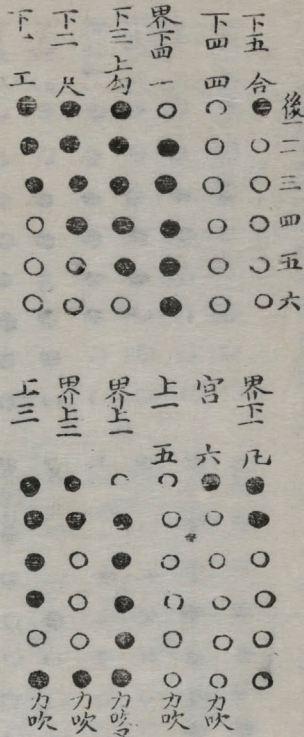 後一 二 三 四 五 六
下五 合
下四 四
界下四 一
下三 上勾
下二 尺
下一 工
界下一 凡
宮 六 力吹
上一 五 力吹
界上一 力吹
界上三 力吹
上三 力吹